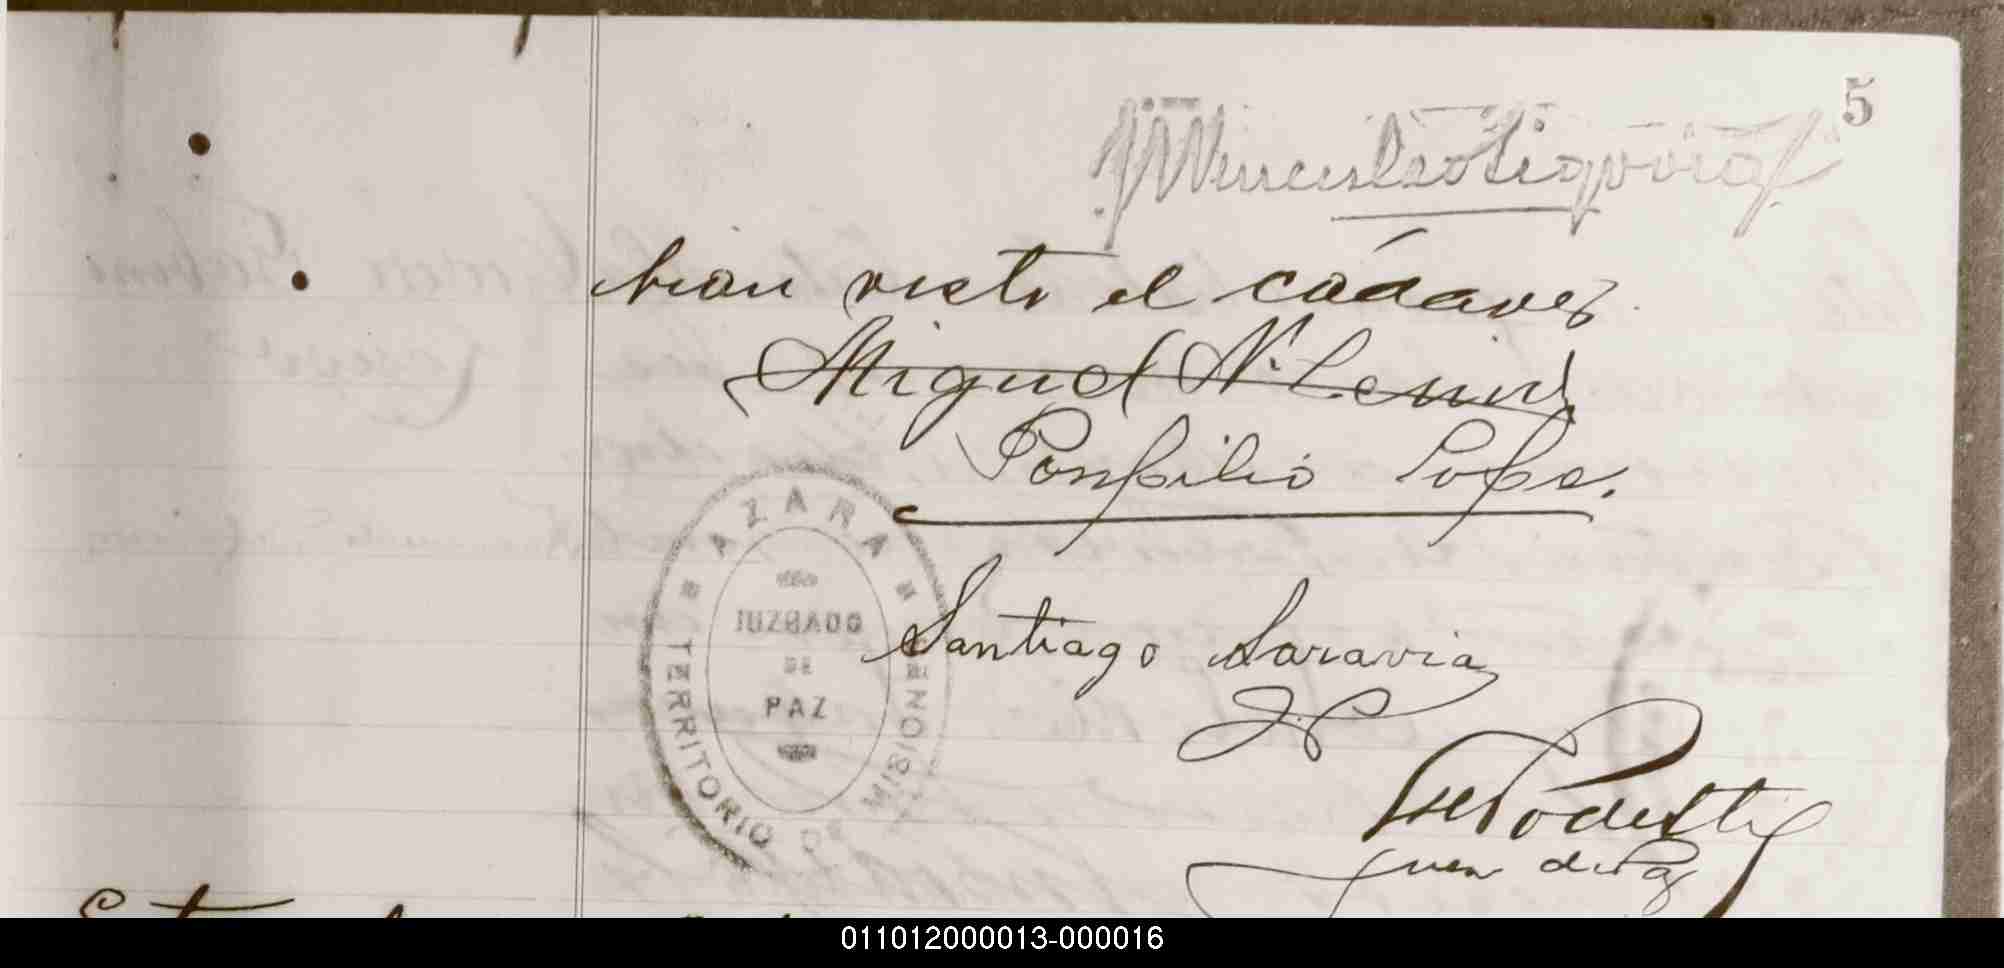 5
bian visto el cadaver
Miguel N. 
Ponpilio Lope.
AZARA
JUZGADO
DE
PAZ
TERRITORIO DE MISIONES
Santiago Saravia
José Podestti
Juez de Paz
011012000013-000016